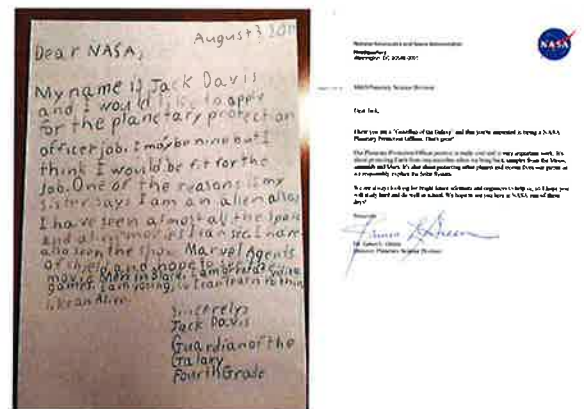 August 3 2017
Dear NASA,
My name is Jack Davis
and I would like to apply
for the planetary protection
officer job. I may be nine but I
think I would be fit for the
job. One of the reasons is my
sister says I am an alien also
I have seen almost all the space
and alien movies I can see. I have
also seen the show Marvel Agents
of Shield and hope to see the
movie Men in Black. I am great at video
games. I am young, so I can learn to think
like an Alien.
Sincerely,
Jack Davis
Guardian of the
Galaxy
Fourth Grade
National Aeronautics and Space Administration
Headquarters
Washington, DC 20546-0001
NASA
Planetary Science Division
Dear Jack,
I hear you are a "Guardian of the Galaxy" and that you're interested in being a NASA
Planetary Protection Officer. That's great!
Our Planetary Protection Officer position is really cool and is very important work. It's
about protecting Earth from tiny microbes when we bring back samples from the Moon,
asteroids and Mars. It's also about protecting other planets and moons from our germs as
we responsibly explore the Solar System.
We are always looking for bright future scientists and engineers to help us, so I hope you
will study hard and do well in school. We hope to see you here at NASA one of these
days!
Sincerely,
Dr. James L. Green
Director, Planetary Science Division